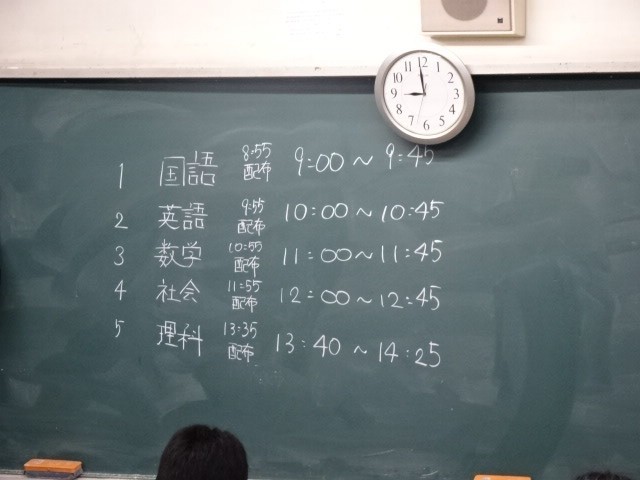 12
1
2
3
4
5
6
7
8
9
10
11
1 国語 8:55 配布 9:00 ~ 9:45
2 英語 9:55 配布 10:00 ~ 10:45
3 数学 10:55 配布 11:00 ~ 11:45
4 社会 11:55 配布 12:00 ~ 12:45
5 理科 13:35 配布 13:40 ~ 14:25